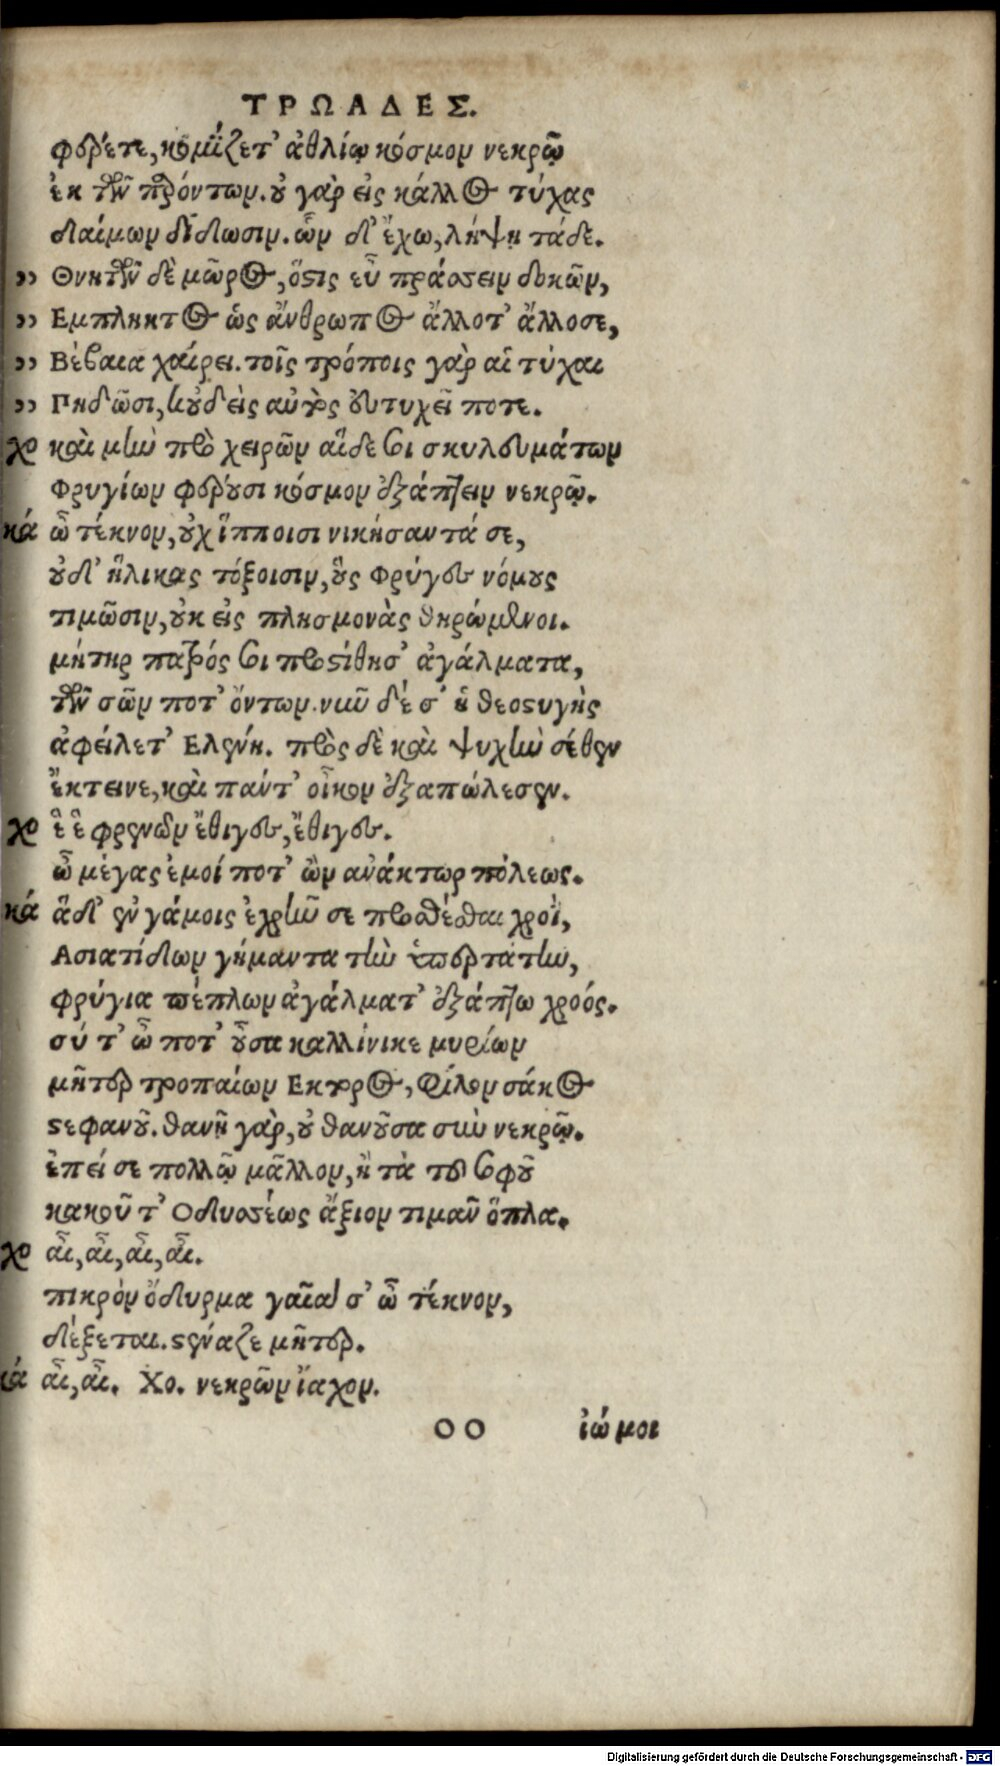 ΤΡΩΑΔΕΣ.
φέρετε, κομίζετ' ἀθλίῳ κόσμον νεκρῷ
ἐκ τῶν παρόντων. οὐ γὰρ εἰς κάλλος τύχας
δαίμων δίδωσιν. ὧν δ' ἔχω, λήψῃ τάδε.
,, Θνητῶν δὲ μῶρος, ὅστις εὖ πράσσειν δοκῶν,
,, Εμπληκτος ὡς ἄνθρωπος ἄλλοτ' ἄλλοσε,
,, Βέβαια χαίρει. τοῖς τρόποις γὰρ αἱ τύχαι
,, Πηδῶσι, κοὐδεὶς αὐτὸς εὐτυχεῖ ποτε.
χο καὶ μὴν πρὸ χειρῶν αἵδε σοι σκυλευμάτων
Φρυγίων φέρουσι κόσμον ἐξάπτειν νεκρῷ.
κά ὦ τέκνον, οὐχ ἵπποισι νικήσαντά σε,
οὐδ' ἥλικας τόξοισιν, οὓς Φρύγες νόμους
τιμῶσιν, οὐκ εἰς πλησμονὰς θηρώμενοι.
μήτηρ πατρός σοι προστίθησ' ἀγάλματα,
τῶν σῶν ποτ' ὄντων. νῦν δέ σ' ἡ θεοστυγὴς
ἀφείλετ' Ελένη. πρὸς δὲ καὶ ψυχὴν σέθεν
ἔκτεινε, καὶ παντ' οἶκον ἐξαπώλεσεν.
χο ἒ ἒ φρενῶν ἔθιγες, ἔθιγες.
ὦ μέγας ἐμοί ποτ' ὢν ἀνάκτωρ πόλεως.
κά ἃ δ' ἐν γάμοις ἐχρῆν σε προσθέσθαι χροῒ,
Ασιατίδων γήμαντα τὴν ὑπερτάτην,
φρύγια πέπλων ἀγάλματ' ἐξάπτω χροός.
σύ τ' ὦ ποτ' οὖσα καλλίνικε μυρίων
μῆτερ τροπαίων Εκτορος, φίλον σάκος
στεφανοῦ. θανῇ γὰρ, οὐ θανοῦσα σὺν νεκρῷ.
ἐπεί σε πολλῷ μᾶλλον, ἢ τὰ τοῦ σοφοῦ
κακοῦ τ' Οδυσσέως ἄξιον τιμᾶν ὅπλα.
χο αἶ, αἶ, αἶ, αἶ.
πικρὸν ὄδυρμα γαῖά σ' ὦ τέκνον,
δέξεται. στέναζε μῆτερ.
κά αἶ, αἶ. Χο. νεκρῶν ἴαχον.
ΟΟ ἰώ μοι
Digitalisierung gefördert durch die Deutsche Forschungsgemeinschaft - DFG